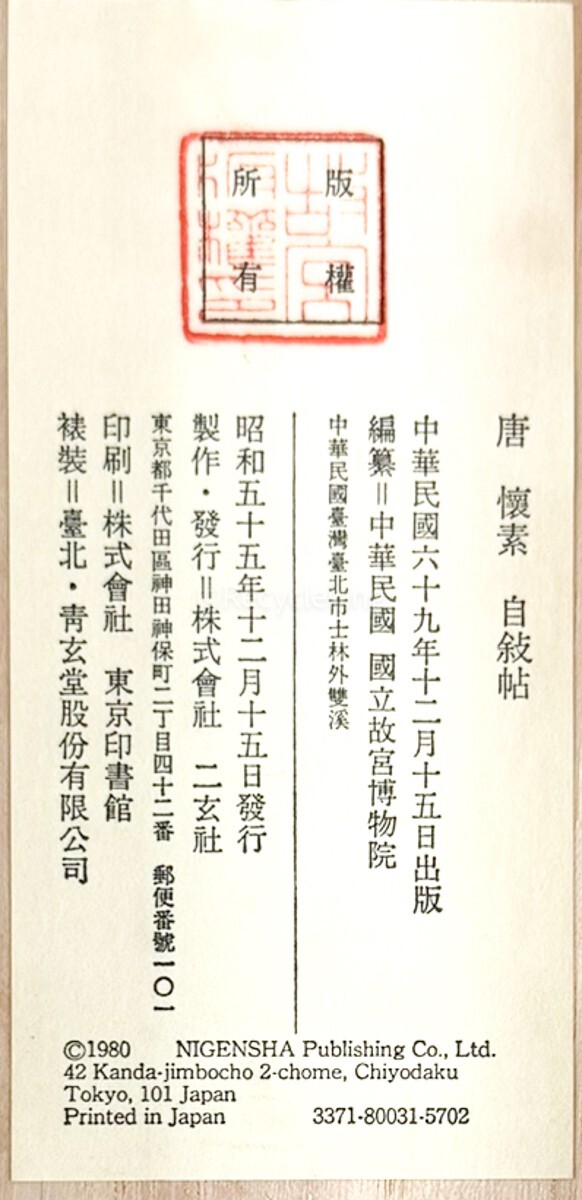 版權
所有
唐　懷素　自敍帖
中華民國六十九年十二月十五日出版
編纂＝中華民國　國立故宮博物院
中華民國臺灣臺北市士林外雙溪
昭和五十五年十二月十五日發行
製作・發行＝株式會社　二玄社
東京都千代田區神田神保町二丁目四十二番　郵便番號一〇一
印刷＝株式會社　東京印書館
裱裝＝臺北・靑玄堂股份有限公司
©1980 NIGENSHA Publishing Co., Ltd.
42 Kanda-jimbocho 2-chome, Chiyodaku
Tokyo, 101 Japan
Printed in Japan 3371-80031-5702